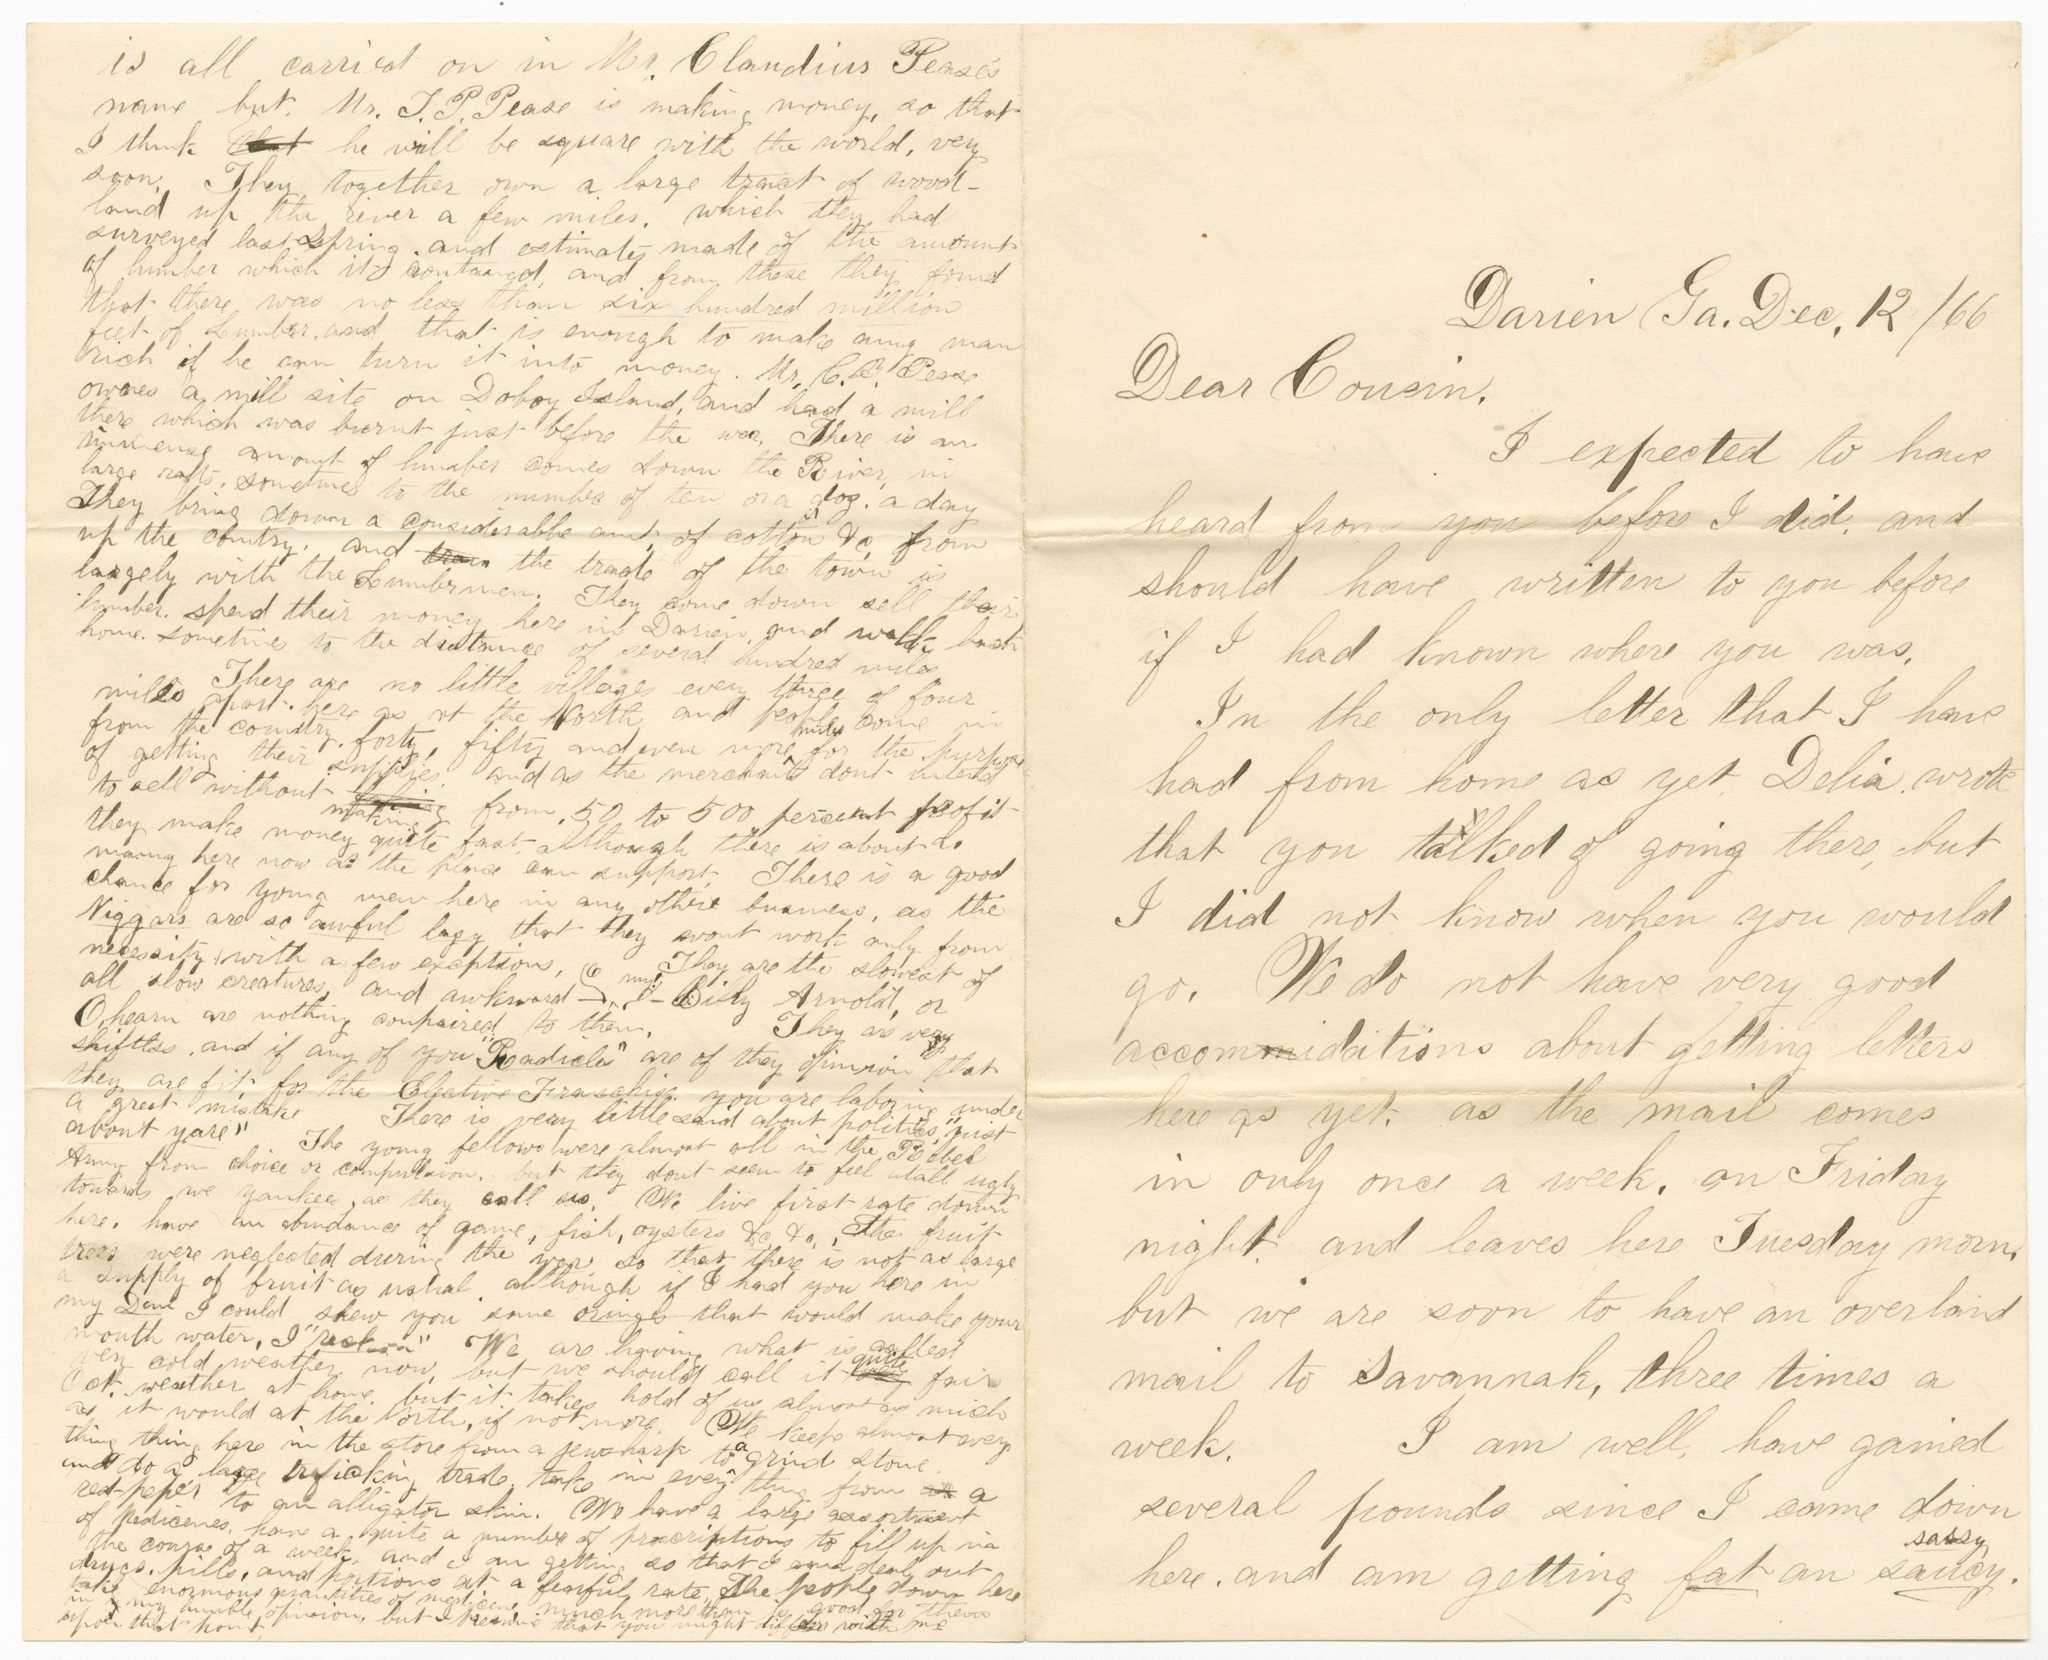 Darien Ga. Dec. 12/66
Dear Cousin.
I expected to have
heard from you before I did, and
should have written to you before
if I had known where you was.
In the only letter that I have
had from home as yet, Delia wrote
that you talked of going there, but
I did not know when you would
go. We do not have very good
accommidations about getting letters
here as yet. as the mail comes
in only once a week. on Friday
night. and leaves here Tuesday morn.
but we are soon to have an overland
mail to Savannah, three times a
week. I am well, have gained
several pounds since I came down
here. and am getting fat an saucy. sassy
is all carried on in Mr. Claudius Pease's
name but Mr. T. P. Pease is making money, so that
I think that he will be square with the world, very
soon. They together own a large tract of wood-
land up the river a few miles. which they had
surveyed last Spring. and estimates made of the amount
of lumber which it contained, and from these they found
that there was no less than six hundred million
feet of Lumber. and that is enough to make any man
rich if he can turn it into money. Mr. C. B. Pease
ownes a mill site on Doboy Island, and had a mill
there which was burnt just before the war. There is an
immense amount of lumber comes down the River, in
large rafts, sometimes to the number of ten or a doz. a day
They bring down a considerable amt. of cotton &c from
up the country. and the trade of the town is
largely with the Lumbermen. They come down sell their
lumber. spend their money here in Darien, and walk back
home. sometimes to the distance of several hundred miles
There are no little villages every three of four
miles apart. here as at the North, and people come in
from the country. forty, fifty and even more miles for the purpose
of getting their supplies. and as the merchants dont intend
to sell without making from 50 to 500 percent profit
they make money quite fast. although there is about as
many here now as the place can support. There is a good
chance for young men here in any other business, as the
Niggars are so awful lazy that they wont work only from
necessity, with a few exeptions. They are the slowest of
all slow creatures, and awkward my! Billy Arnold, or
O,hearn are nothing compaired to them. They are very
shiftless. and if any of you "Radicls" are of they opinion that
they are fit for the Elective Franchise you are laboring under
a great mistake There is very little said about polities, "just
about yare" The young fellows were almost all in the Rebel
Army from choice or compulsion. but they dont seem to feel atall ugly
towards we yankees, as they call us. We live first rate down
here. have an abundance of game, fish, oysters &c, &c,. The fruit
trees were neglected during the war, so that there is not as large
a supply of fruit as usual. although if I had you here in
my Den I could shew you some oringes that would make your
mouth water, I "reckon" We are having what is called
very cold weather now, but we should call it quite fair
Oct. weather at home. but it takes hold of us almost as much
as it would at the North, if not more. We keep almost every
thing thing here in the store from a jewsharp to a grind stone.
and do a large trafficking trade, take in every thing from a
red-peper to an alligator skin. We have a large assortment
of Medicenes. have a quite a number of prescriptions to fill up in
the course of a week, and I am getting so that I can deal out
drugs, pills, and potions at a fearful rate. The people down here
take enormous quantities of medicene, much more than is good for them
in my humble opinion. but I presume that you might differ with me
upon that point.